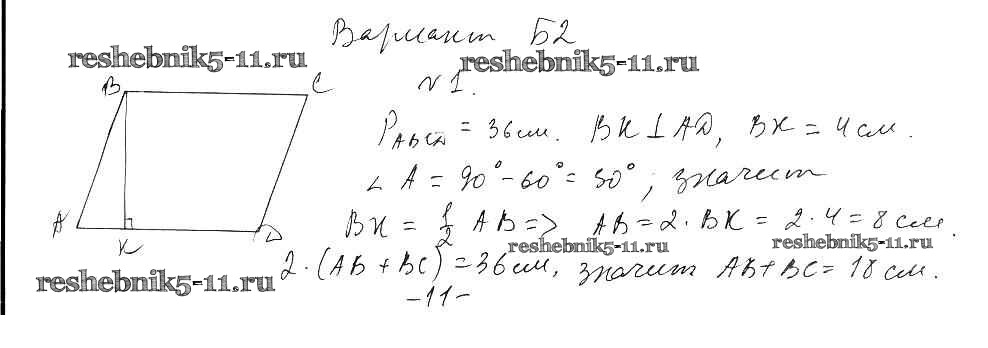 Вариант Б2
reshebnik5-11.ru
reshebnik5-11.ru
B C
№ 1.
P_ABCD = 36 см. BK ⊥ AD, BK = 4 см.
∠ A = 90° - 60° = 30°, значит
A K D
BK = 1/2 AB => AB = 2 · BK = 2 · 4 = 8 см.
reshebnik5-11.ru
reshebnik5-11.ru
2 · (AB + BC) = 36 см, значит AB + BC = 18 см.
reshebnik5-11.ru
-11-